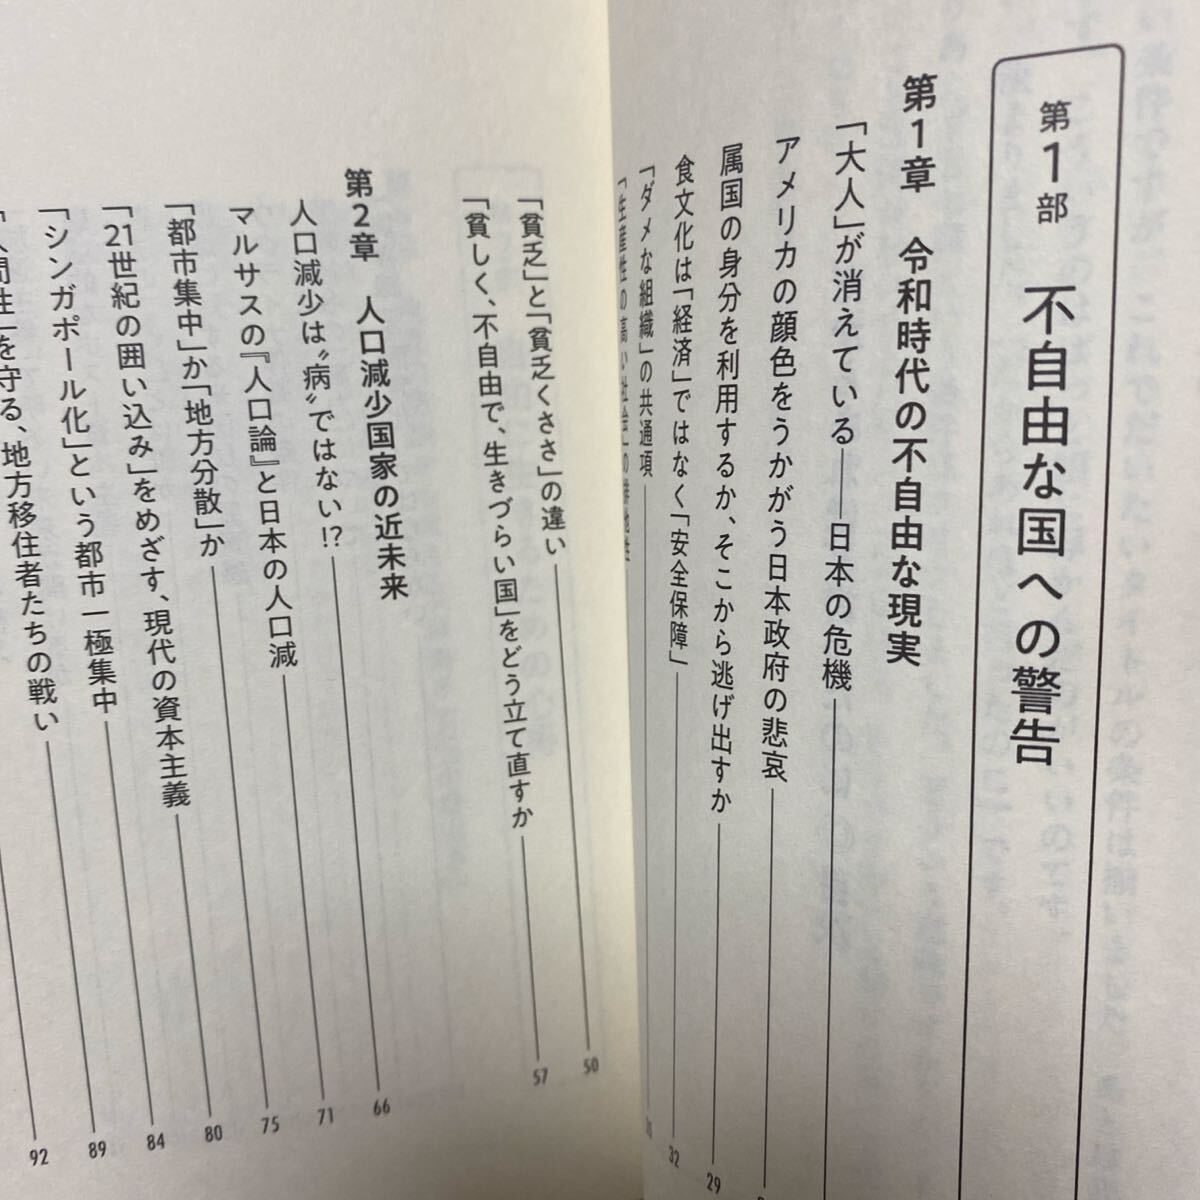 第1部 不自由な国への警告
第1章 令和時代の不自由な現実
「大人」が消えている――日本の危機
アメリカの顔色をうかがう日本政府の悲哀
属国の身分を利用するか、そこから逃げ出すか 29
食文化は「経済」ではなく「安全保障」 32
「ダメな組織」の共通項
「生産性の高い社会」の
「貧乏」と「貧乏くささ」の違い 50
「貧しく、不自由で、生きづらい国」をどう立て直すか 57
第2章 人口減少国家の近未来
人口減少は〝病〟ではない!? 66
マルサスの『人口論』と日本の人口減 71
「都市集中」か「地方分散」か 75
「21世紀の囲い込み」をめざす、現代の資本主義 80
「シンガポール化」という都市一極集中 84
「人間性」を守る、地方移住者たちの戦い 89
92